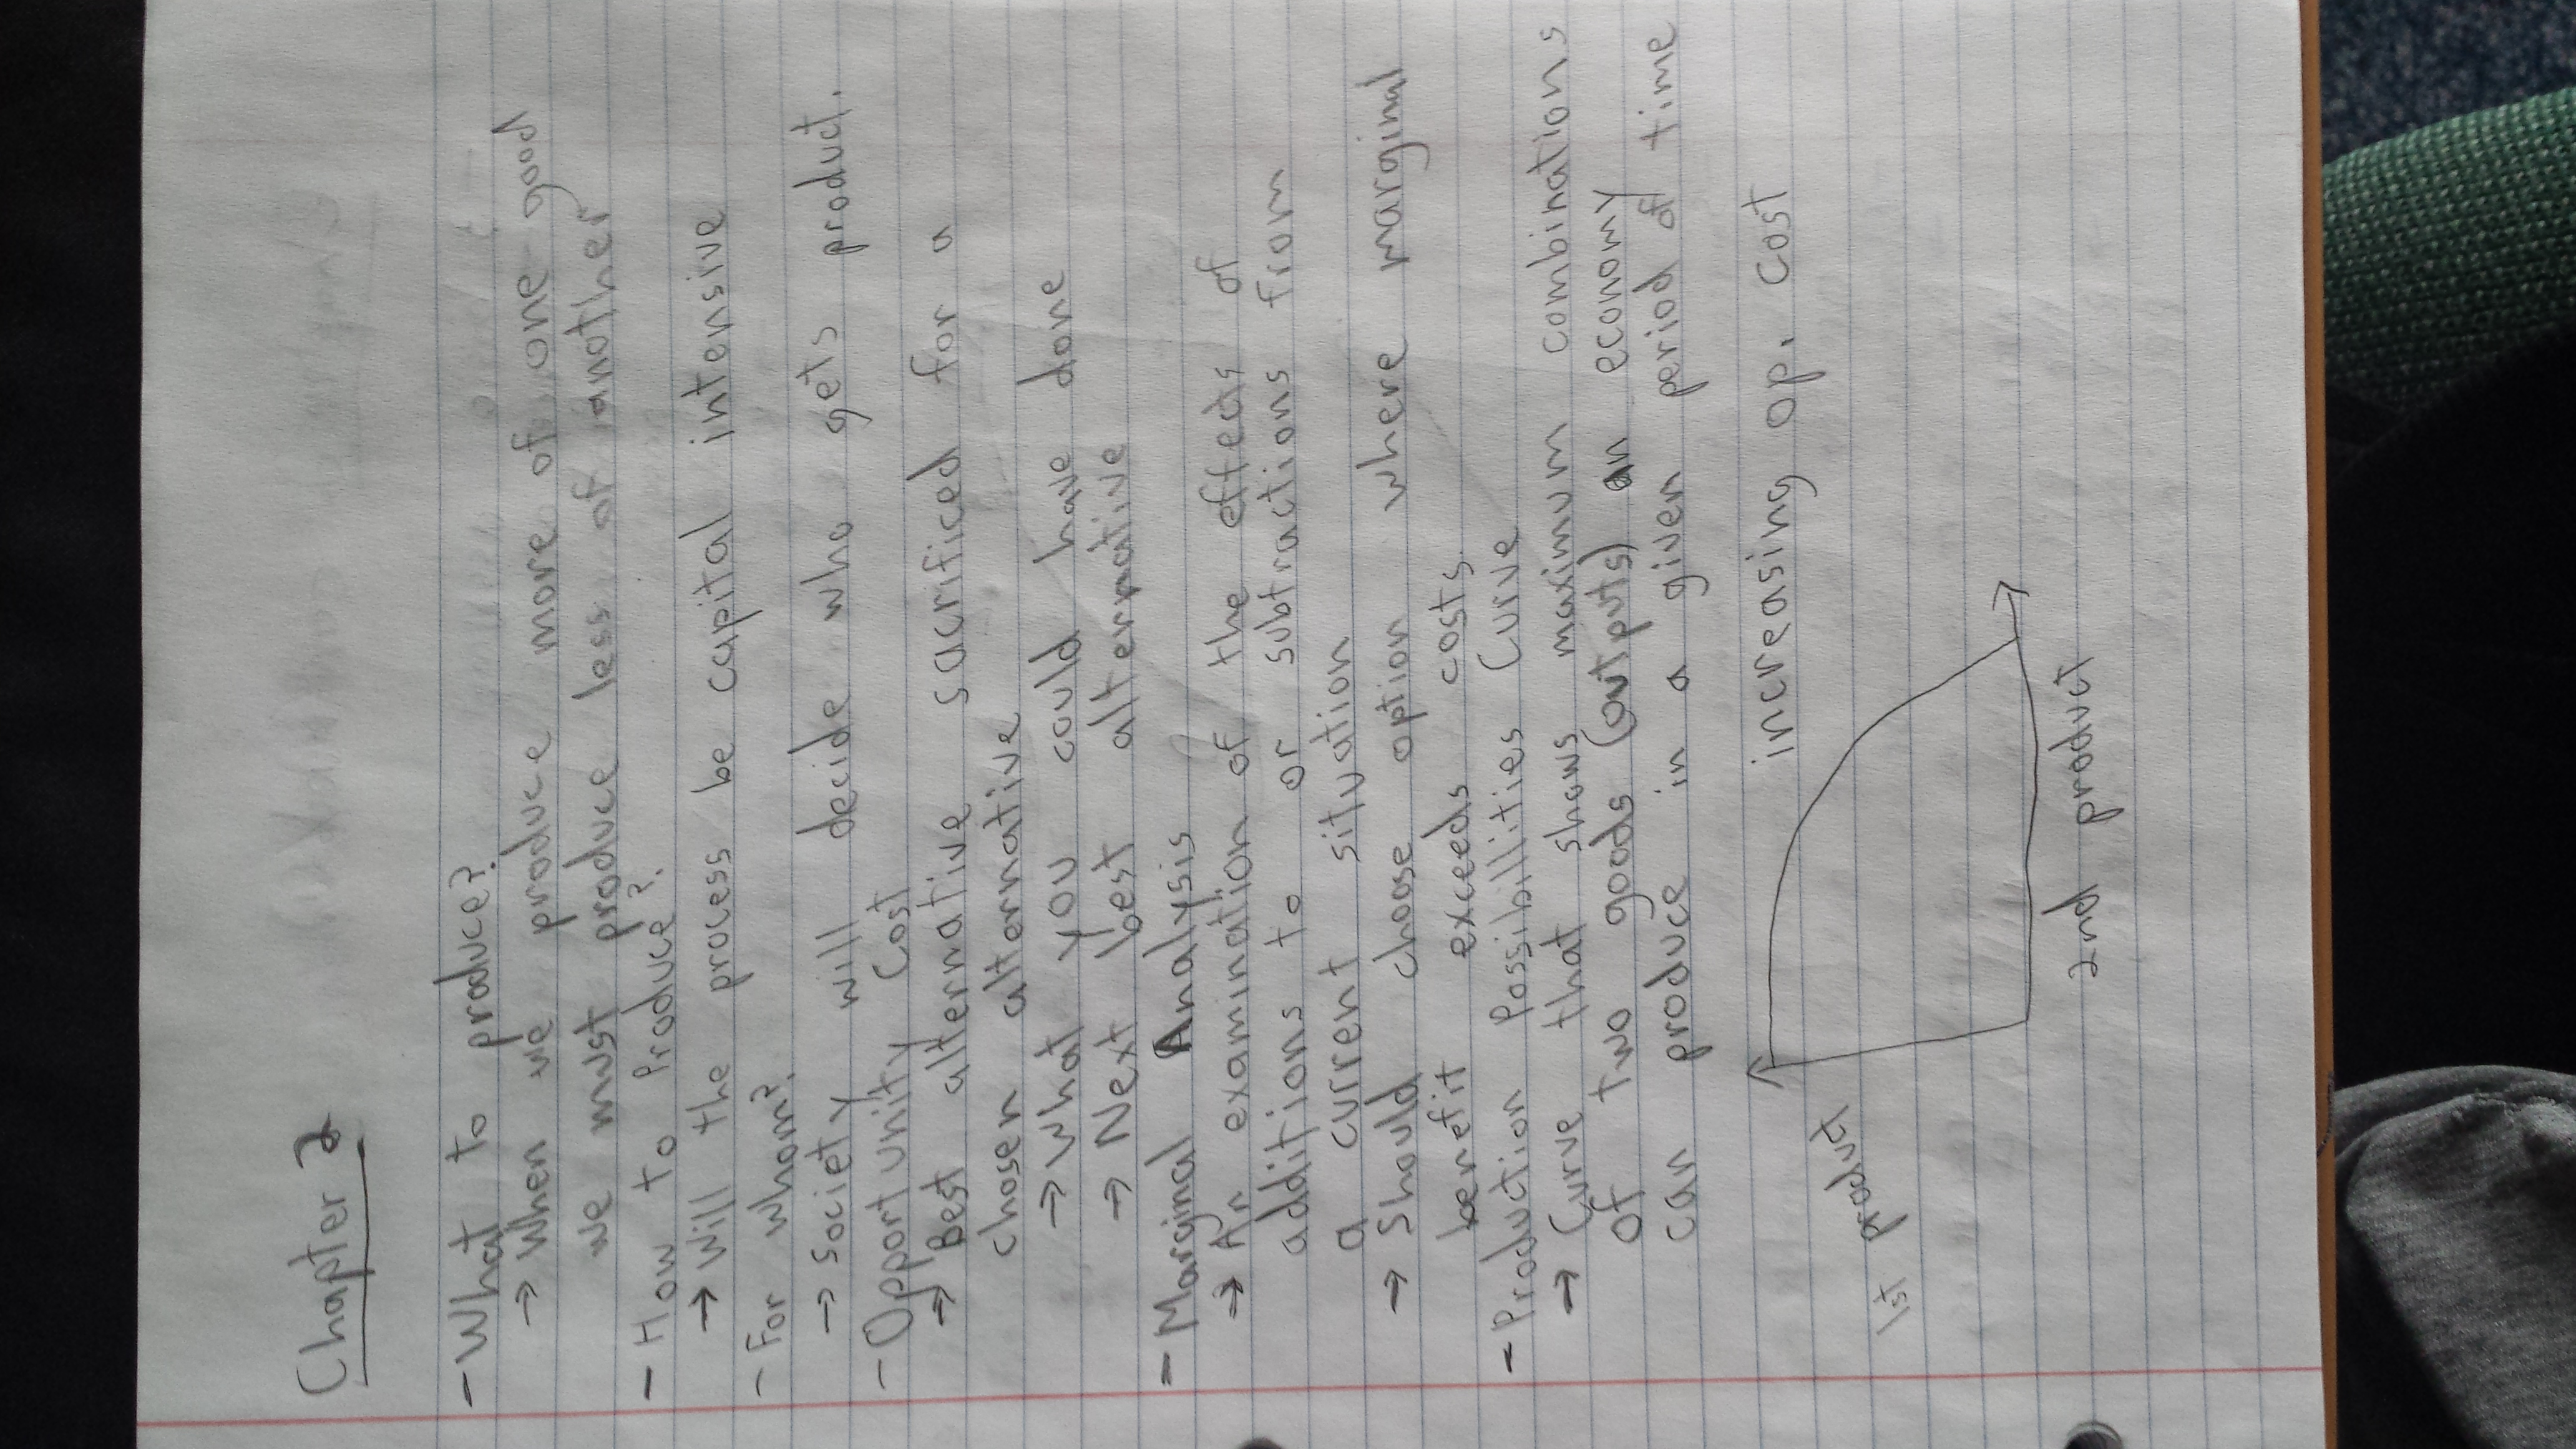 Chapter 2
- What to produce?
→ When we produce more of one good
we must produce less of another
- How to Produce?
→ Will the process be capital intensive
- For whom?
→ Society will decide who gets product.
- Opportunity Cost
→ Best alternative sacrificed for a
chosen alternative
→ What you could have done
→ Next best alternative
- Marginal Analysis
→ An examination of the effects of
additions to or subtractions from
a current situation
→ Should choose option where marginal
benefit exceeds costs.
- Production Possibillities Curve
→ Curve that shows maximum combinations
of two goods (outputs) an economy
can produce in a given period of time
increasing op. cost
1st product
2nd product